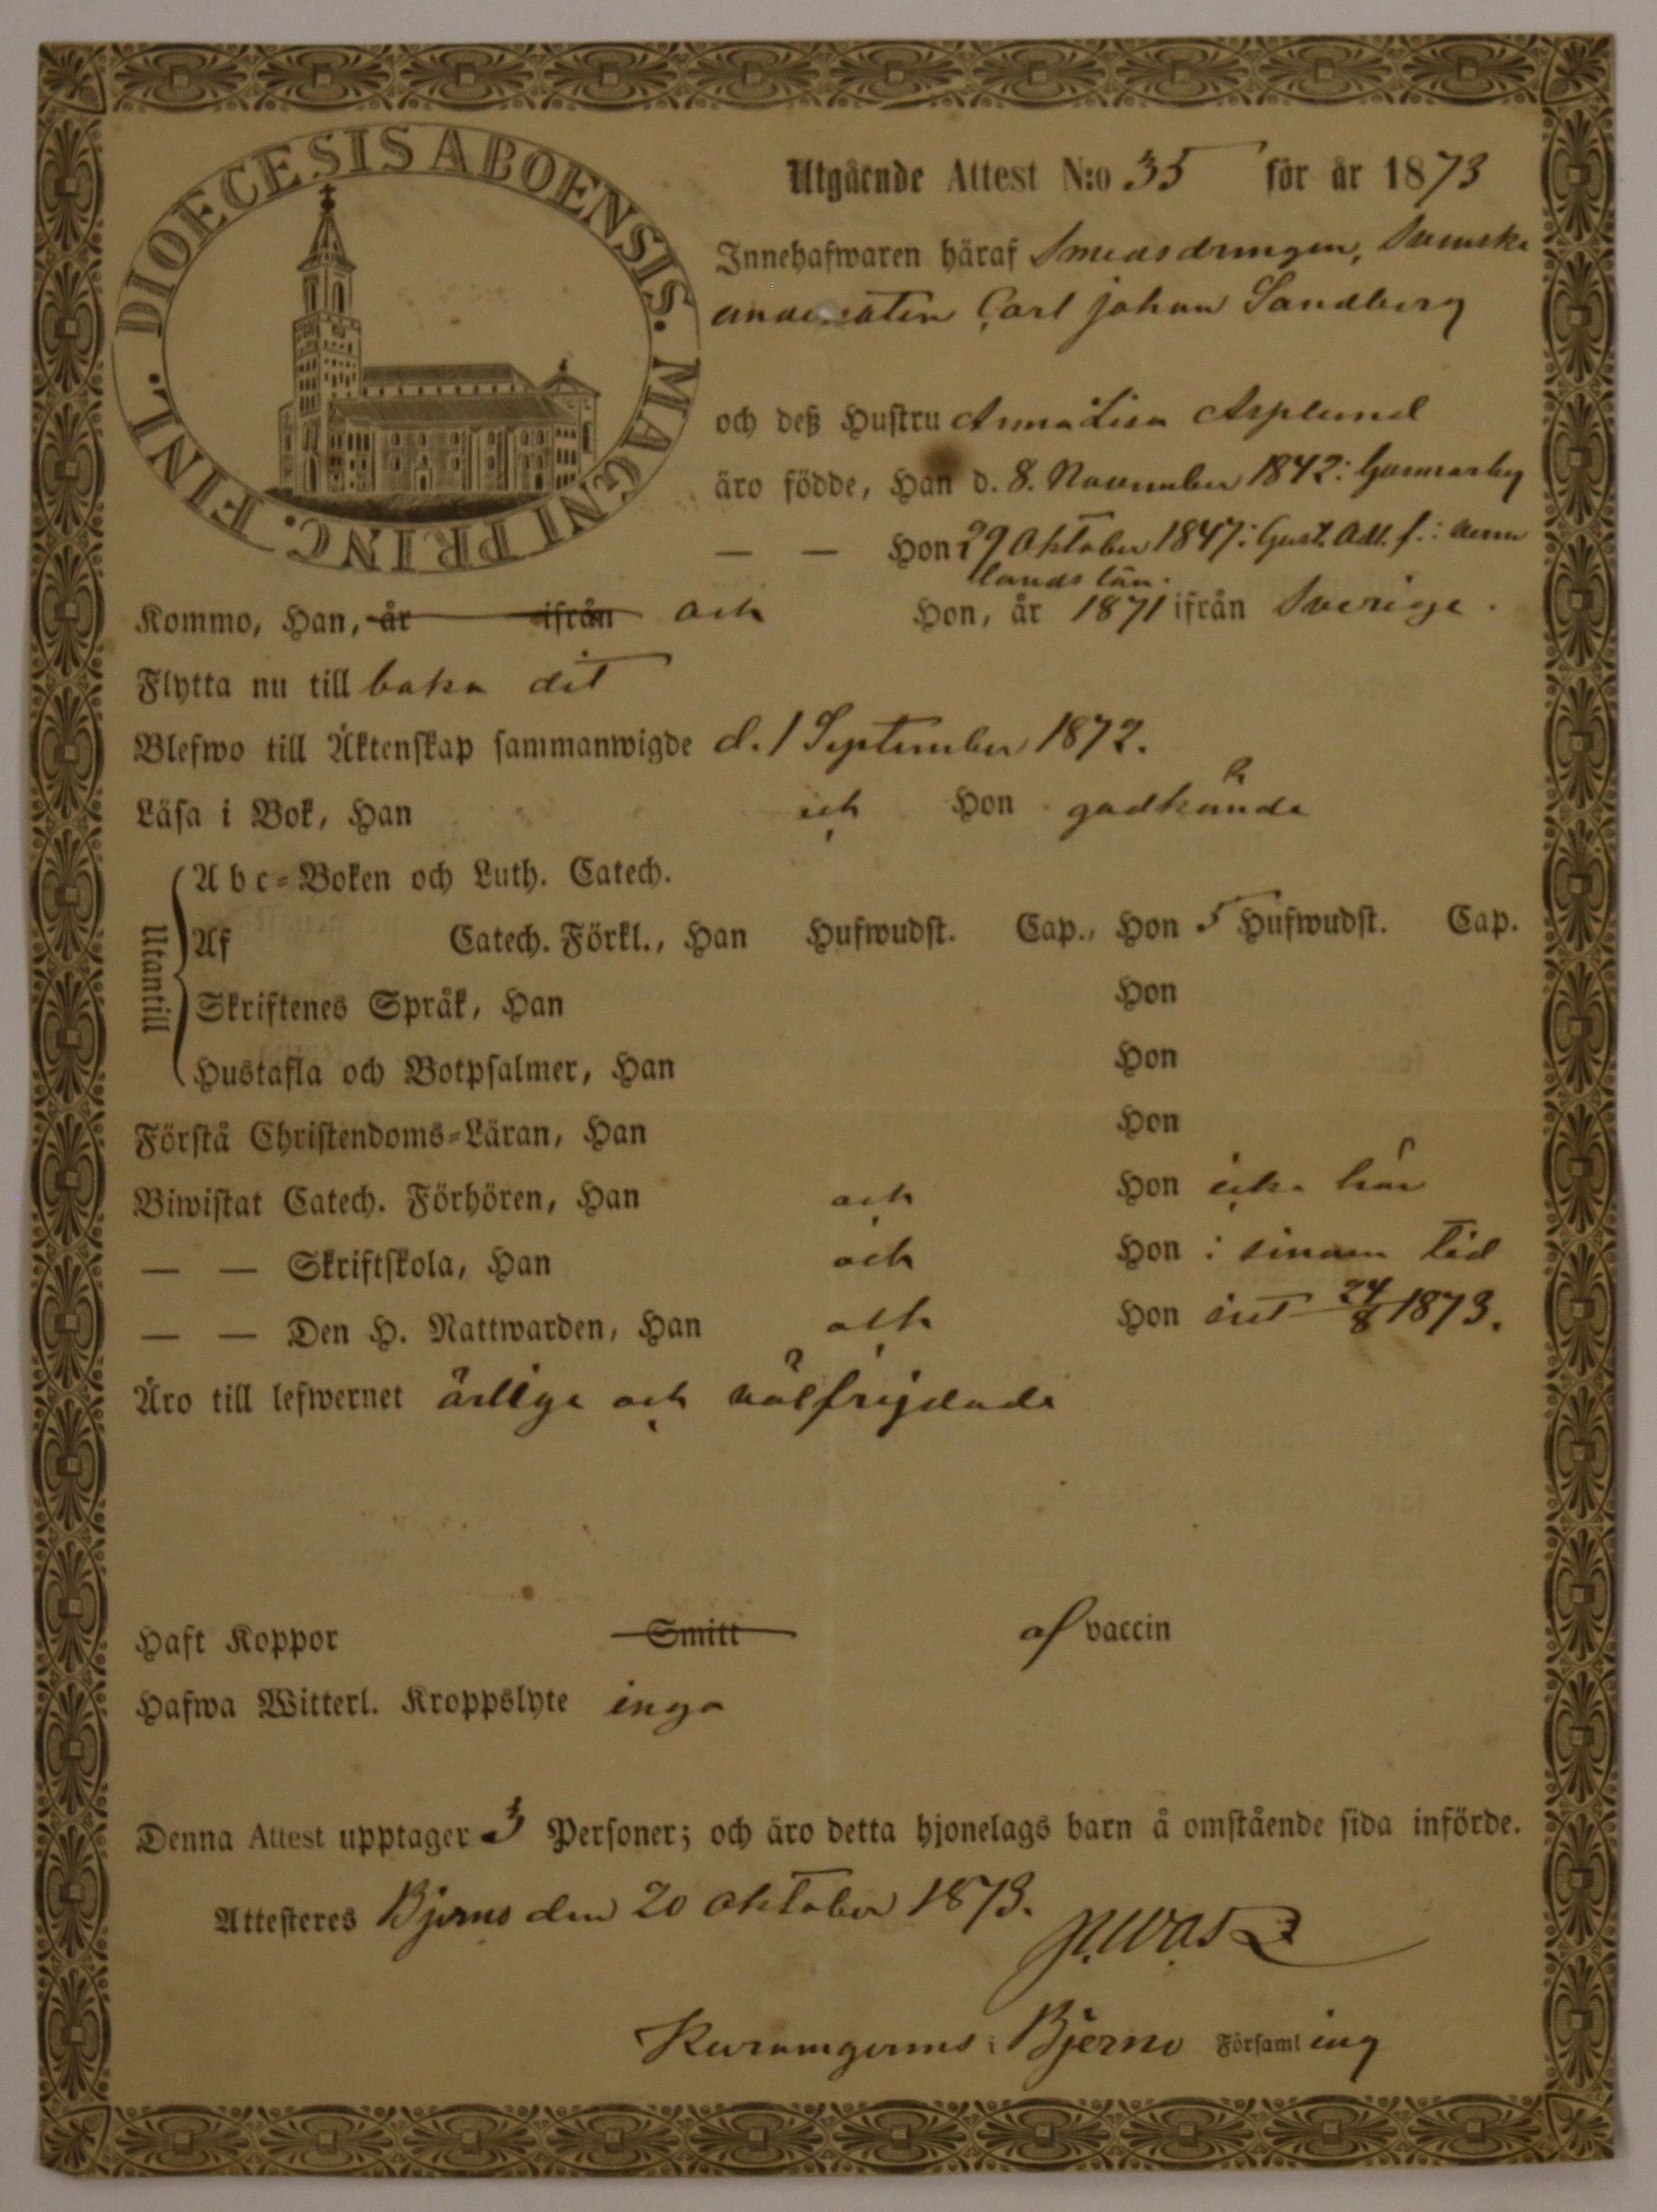 DIOECESIS ABOENSIS. MAGNI PRINC. FINL.
Utgående Attest N:o 35 för år 1873
Innehafwaren häraf Smedsdrängen, Svenske
undersåten Carl Johan Sandberg
och deß Hustru Anna Lisa Asplund
äro födde, Han d. 8. November 1842 i Gunnarsby
— — Hon 29 Oktober 1847 i Gust. Adl. f. i Werm
lands län.
Kommo, Han, år ifrån och Hon, år 1871 ifrån Sverige.
Flytta nu till baka dit
Blefwo till Äktenskap sammanwigde d. 1 September 1872.
Läsa i Bok, Han och Hon godkände
Utantill
A b c-Boken och Luth. Catech.
Af Catech. Förkl., Han Hufwudst. Cap., Hon 5 Hufwudst. Cap.
Skriftenes Språk, Han Hon
Hustafla och Botpsalmer, Han Hon
Förstå Christendoms-Läran, Han Hon
Biwistat Catech. Förhören, Han och Hon icke här
— — Skriftskola, Han och Hon i sinom tid
— — Den H. Nattwarden, Han och Hon sist 24/8 1873.
Äro till lefwernet ärliga och välfrejdade
Haft Koppor Smitt af vaccin
Hafwa Witterl. Kroppslyte inga
Denna Attest upptager 3 Personer; och äro detta hjonelags barn å omstående sida införde.
Attesteres Bjerno den 20 Oktober 1873.
i Bjerno Församling